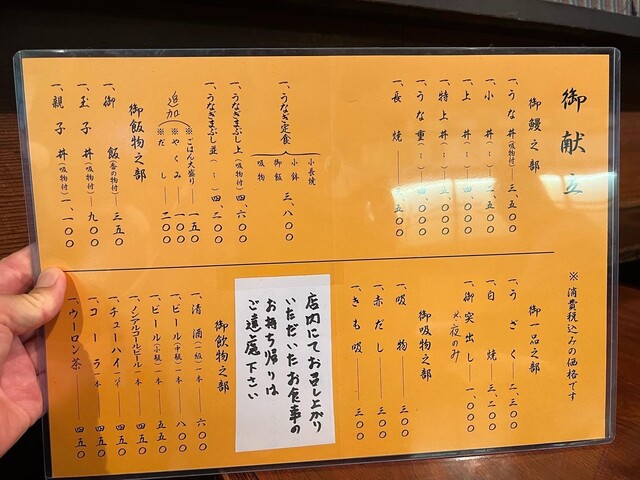 御献立
※消費税込みの価格です
御鰻之部
一、うな丼(吸物付)三、五〇〇
一、小丼(〃)二、五〇〇
一、上丼(〃)
一、特上丼(〃)
一、うな重(〃)
一、長焼
一、うなぎ定食
小長焼
小鉢
御飯
吸物
三、八〇〇
一、うなぎまぶし上(吸物付)四、六〇〇
一、うなぎまぶし並(〃)四、二〇〇
追加
※ごはん大盛り 一五〇
※やくみ 一〇〇
※だし 二〇〇
御飯物之部
一、御飯(香の物付)三五〇
一、玉子丼(吸物付)九〇〇
一、親子丼(吸物付)一、一〇〇
御一品之部
一、うざく 二、三〇〇
一、白焼 三、二〇〇
一、御突出し 一、〇〇〇
※夜のみ
御吸物之部
一、吸物 三〇〇
一、赤だし 三〇〇
一、きも吸 三〇〇
店内にてお召し上がり
いただいたお食事の
お持ち帰りは
ご遠慮下さい
御飲物之部
一、清酒(一級)一本 六〇〇
一、ビール(中瓶)一本 八〇〇
一、ビール(小瓶)一本 五五〇
一、ノンアルコールビール一本 四五〇
一、チューハイ 四五〇
一、コーラ一本 四五〇
一、ウーロン茶 四五〇